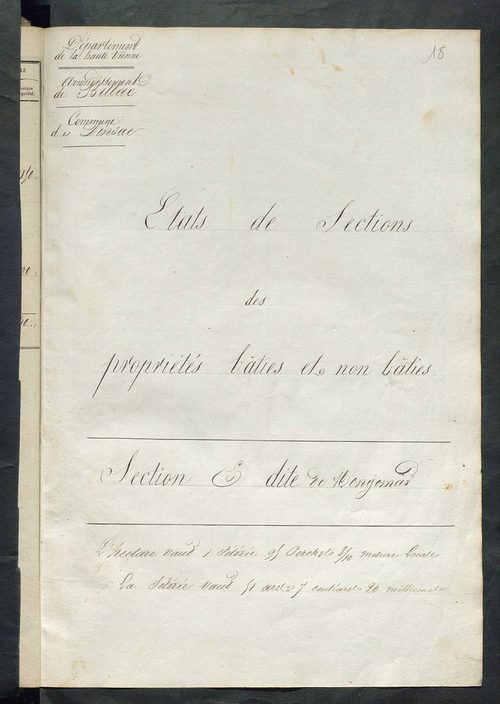 18
Département
de la haute Vienne
Arrondissement
de Bellac
Commune
de
Etats de Sections
des
propriétés bâties et non bâties
Section E dite de
L'hectare vaut 1 Setérée 95 Perches 8/10 mesure locale
La Setérée vaut 51 ares 7 centiares 20